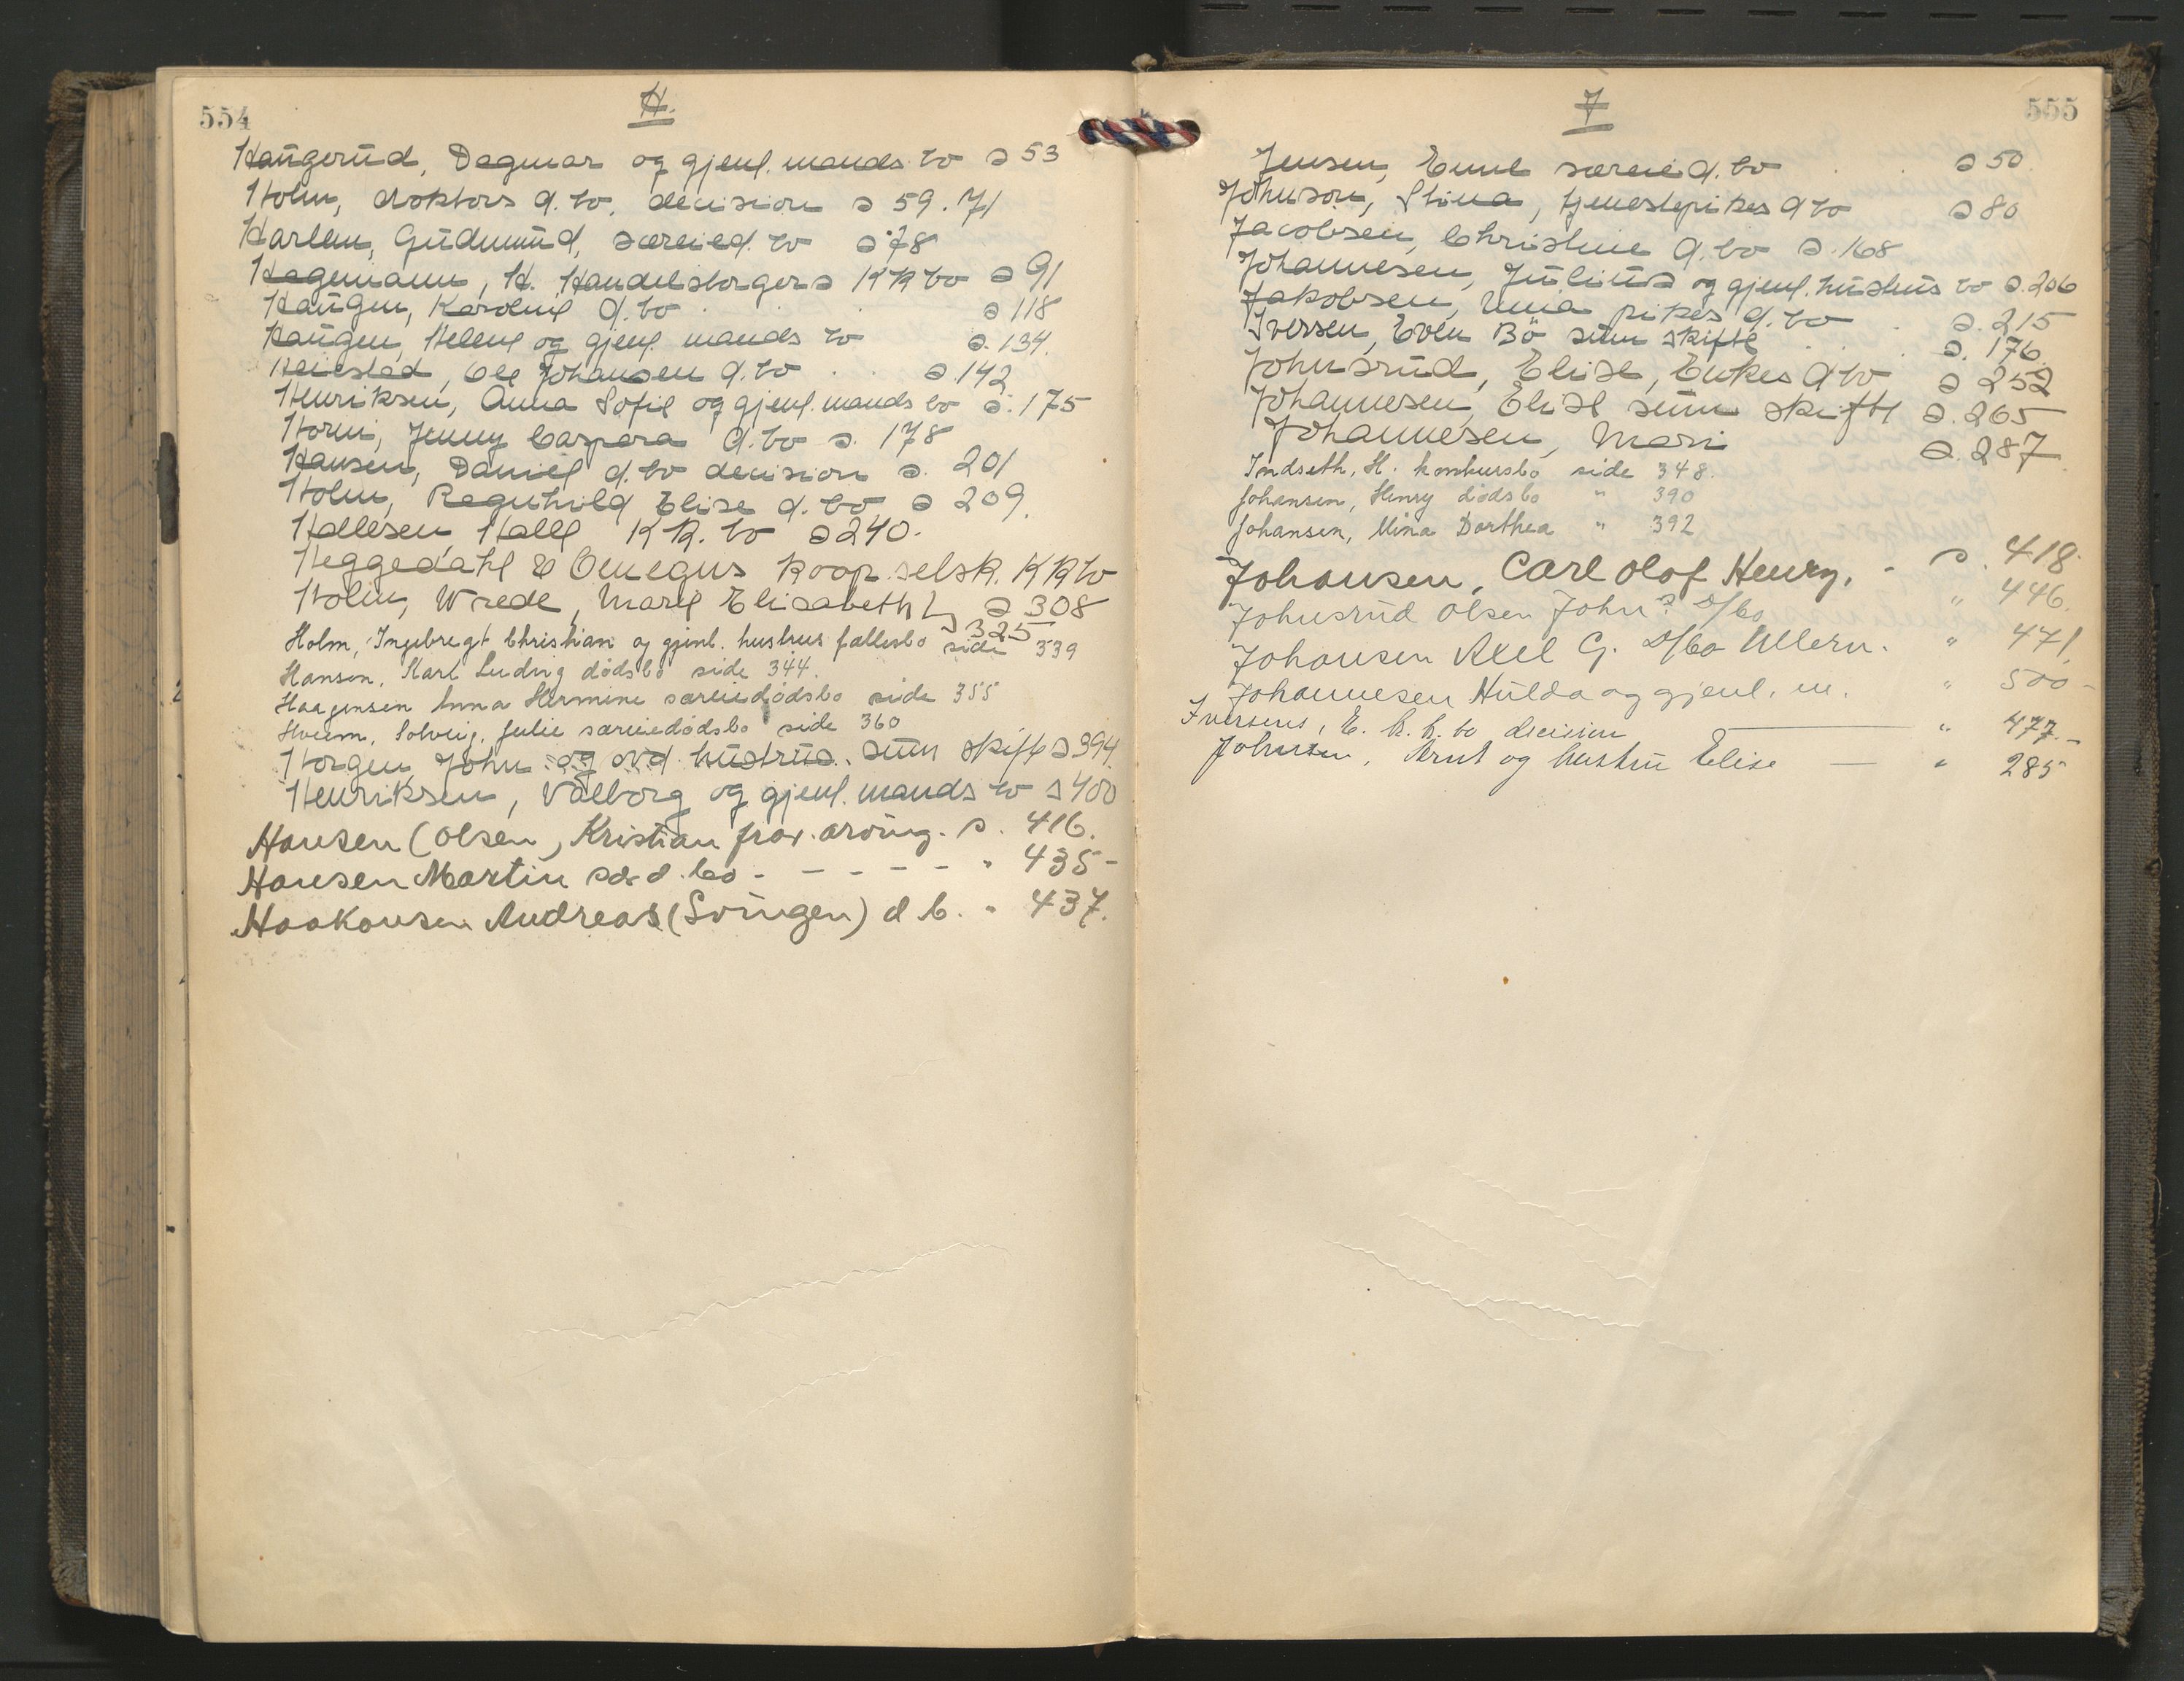 554
H.
Haugerud, Dagmar og gjenl. mands bo s 53
Holm, doktors d. bo, decision s 59. 71
Harlem, Gudmund, særeied. bo s 78
Hagemann, H. Handelsborgers KK bo s 91
Haugen, Karoline d. bo s 118
Haugen, Helene og gjenl. mands bo s. 134.
Heiestad, Ole Johansen d. bo s 142
Henriksen, Anna Sofie og gjenl. mands bo s. 175
Horn, Jenny Caspara d. bo s. 178
Hansen, Daniel d. bo decision s. 201
Holm, Regnhild Elise d. bo s 209.
Hallesen, Halle KK. bo s 240.
Heggedahl & Omegns koop. selsk. KK bo
Holm, Wrede, Marie Elisabeth s 308
325
Holm, Ingebregt Christian og gjenl. hustrus fællesbo side 339
Hansen, Karl Ludvig dødsbo side 344.
Haagensen Anna Hermine særeiedødsbo side 355
Hveem, Solveig, Julie særeiedødsbo side 360
Horgen, John og avd. hustrus. sum skifte s 394.
Henriksen, Valborg og gjenl. mands bo s 400
Hansen (Olsen, Kristian frav. arving. s. 416.
Hansen Martin sær d. bo - - - - - " 435-
Haakonsen Andreas (Svingen) d b. " 437.
555
J
Jensen, Emil særeie d. bo s 50.
Johnson, Stina, tjenestepikes d bo s 80
Jacobsen, Christine d. bo s. 168
Johannesen, Julius og gjenl. hustrus bo s. 206
Jakobsen, Anna pikes d. bo s. 215
Iversen, Even Bö sum skifte s. 176.
Johnsrud, Elise, Enkes d bo s 252
Johannesen, Elise sum skifte s. 265
Johannesen, Mari s. 287
Indseth, H. konkursbo side 348.
Johansen, Henry dødsbo " 390
Johansen, Mina Dorthea " 392
Johansen, Carl Olof Henry. - s. 418.
Johnsrud Olsen John? D/bo " 446.
Johansen Axel G. D/bo Ullern. " 471.
Johannesen Hulda og gjenl. m. " 500-
Iversens, E. k. k. bo decision " 477.-
Johnsen, Arnt og hustru Elise — " 285